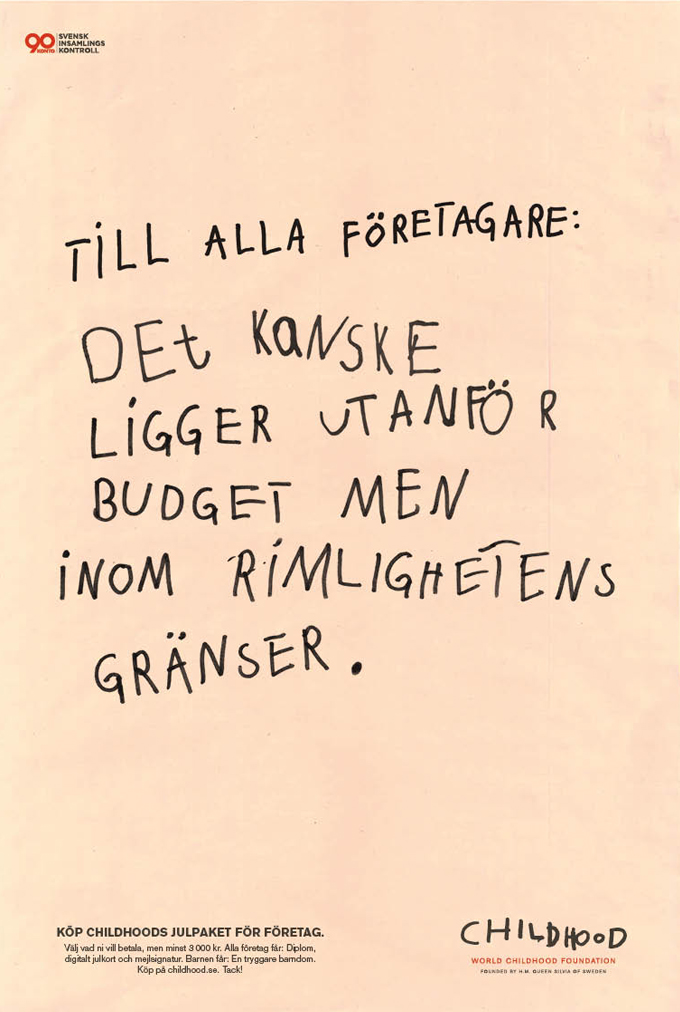 90 KONTO
SVENSK
INSAMLINGS
KONTROLL
TiLL ALLA FÖRETAGARE:
DEt KaNSKE
LiGGER UTANFÖR
BUDGET MEN
iNOM RiMLIGHETENS
GRÄNSER.
KÖP CHILDHOODS JULPAKET FÖR FÖRETAG.
Välj vad ni vill betala, men minst 3 000 kr. Alla företag får: Diplom,
digitalt julkort och mejlsignatur. Barnen får: En tryggare barndom.
Köp på childhood.se. Tack!
CHILDHOOD
WORLD CHILDHOOD FOUNDATION
FOUNDED BY H.M. QUEEN SILVIA OF SWEDEN